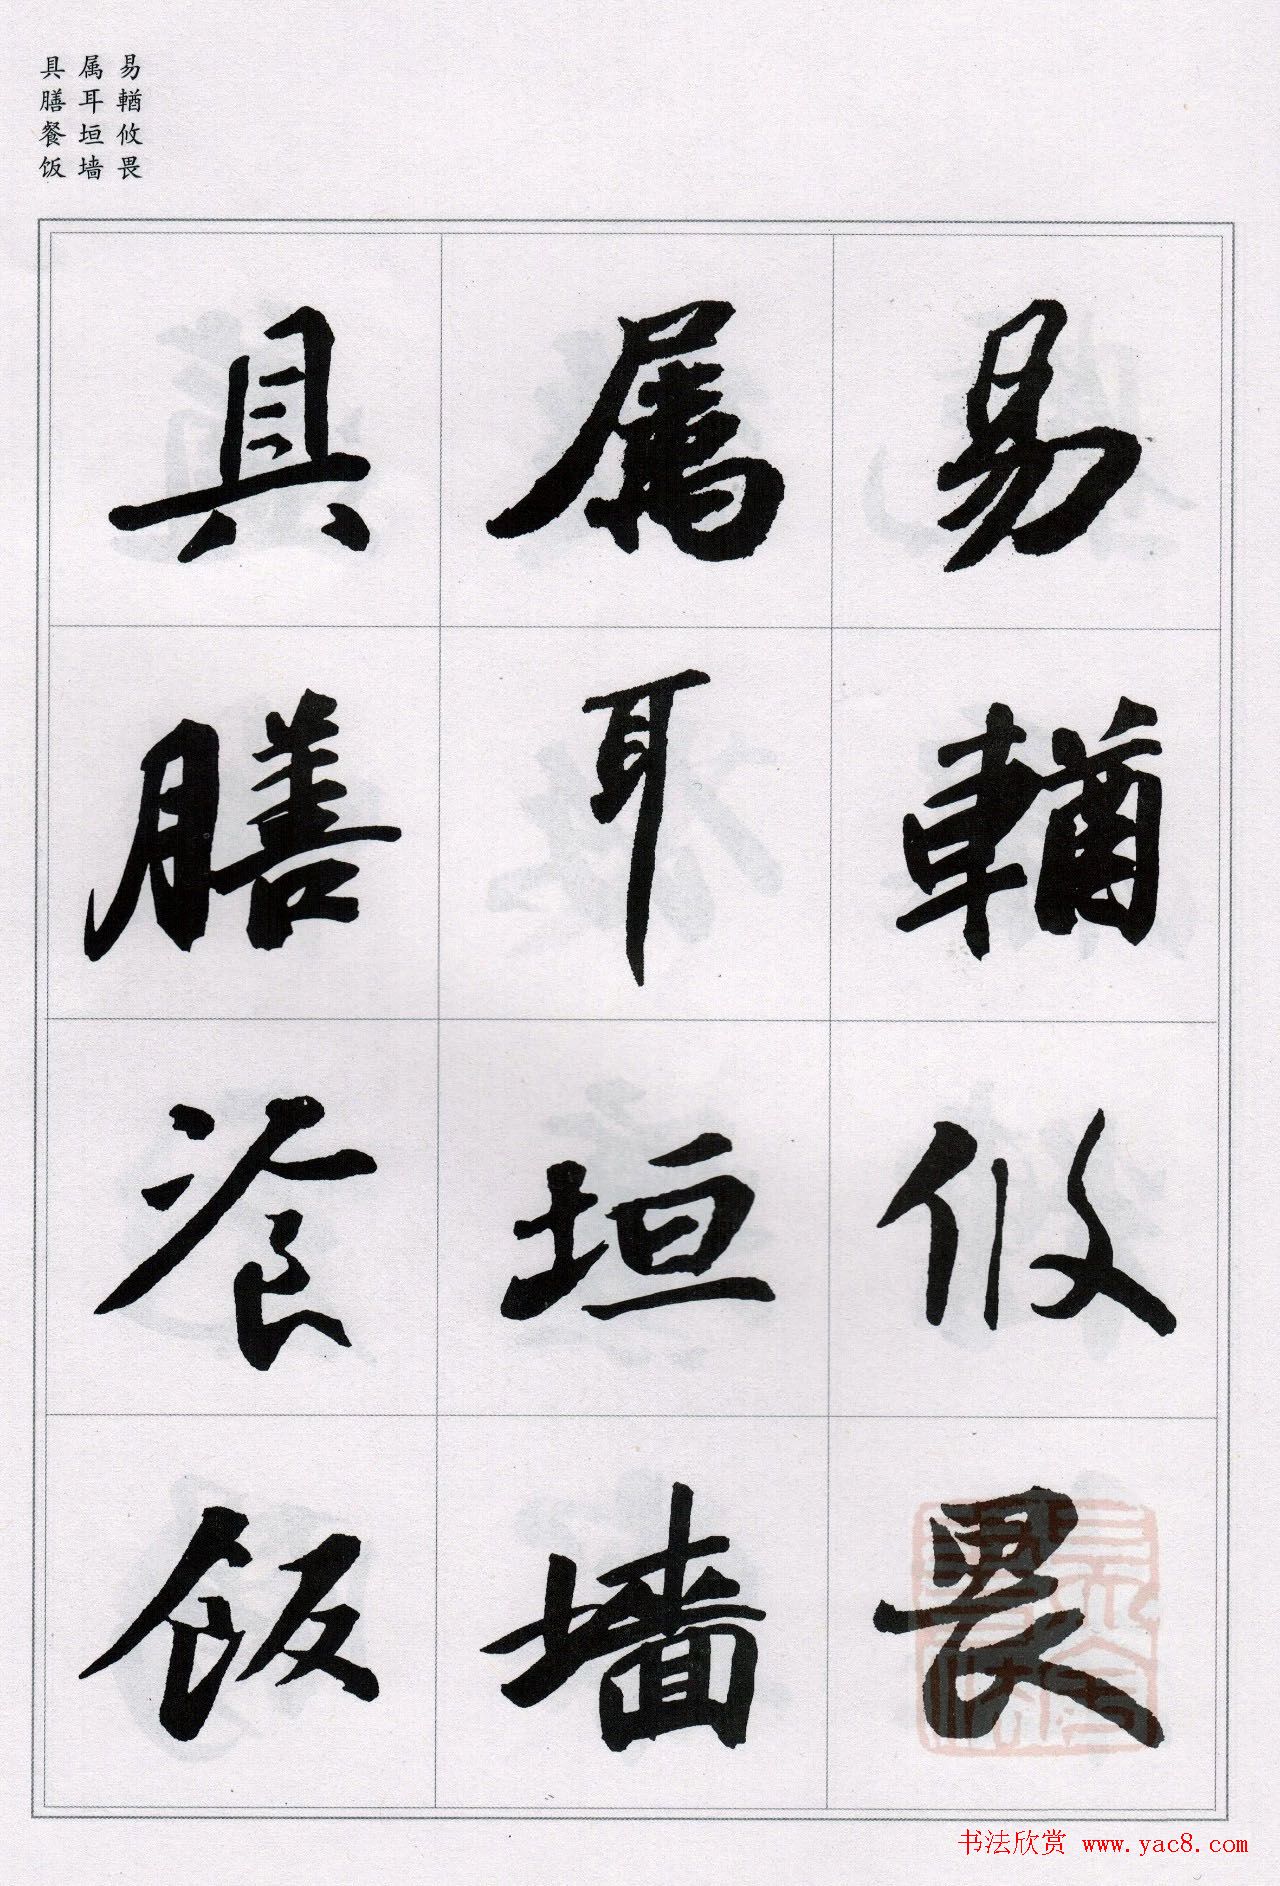 易輶攸畏
属耳垣墙
具膳餐饭
易輶攸畏
属耳垣墙
具膳飡饭
书法欣赏 www.yac8.com